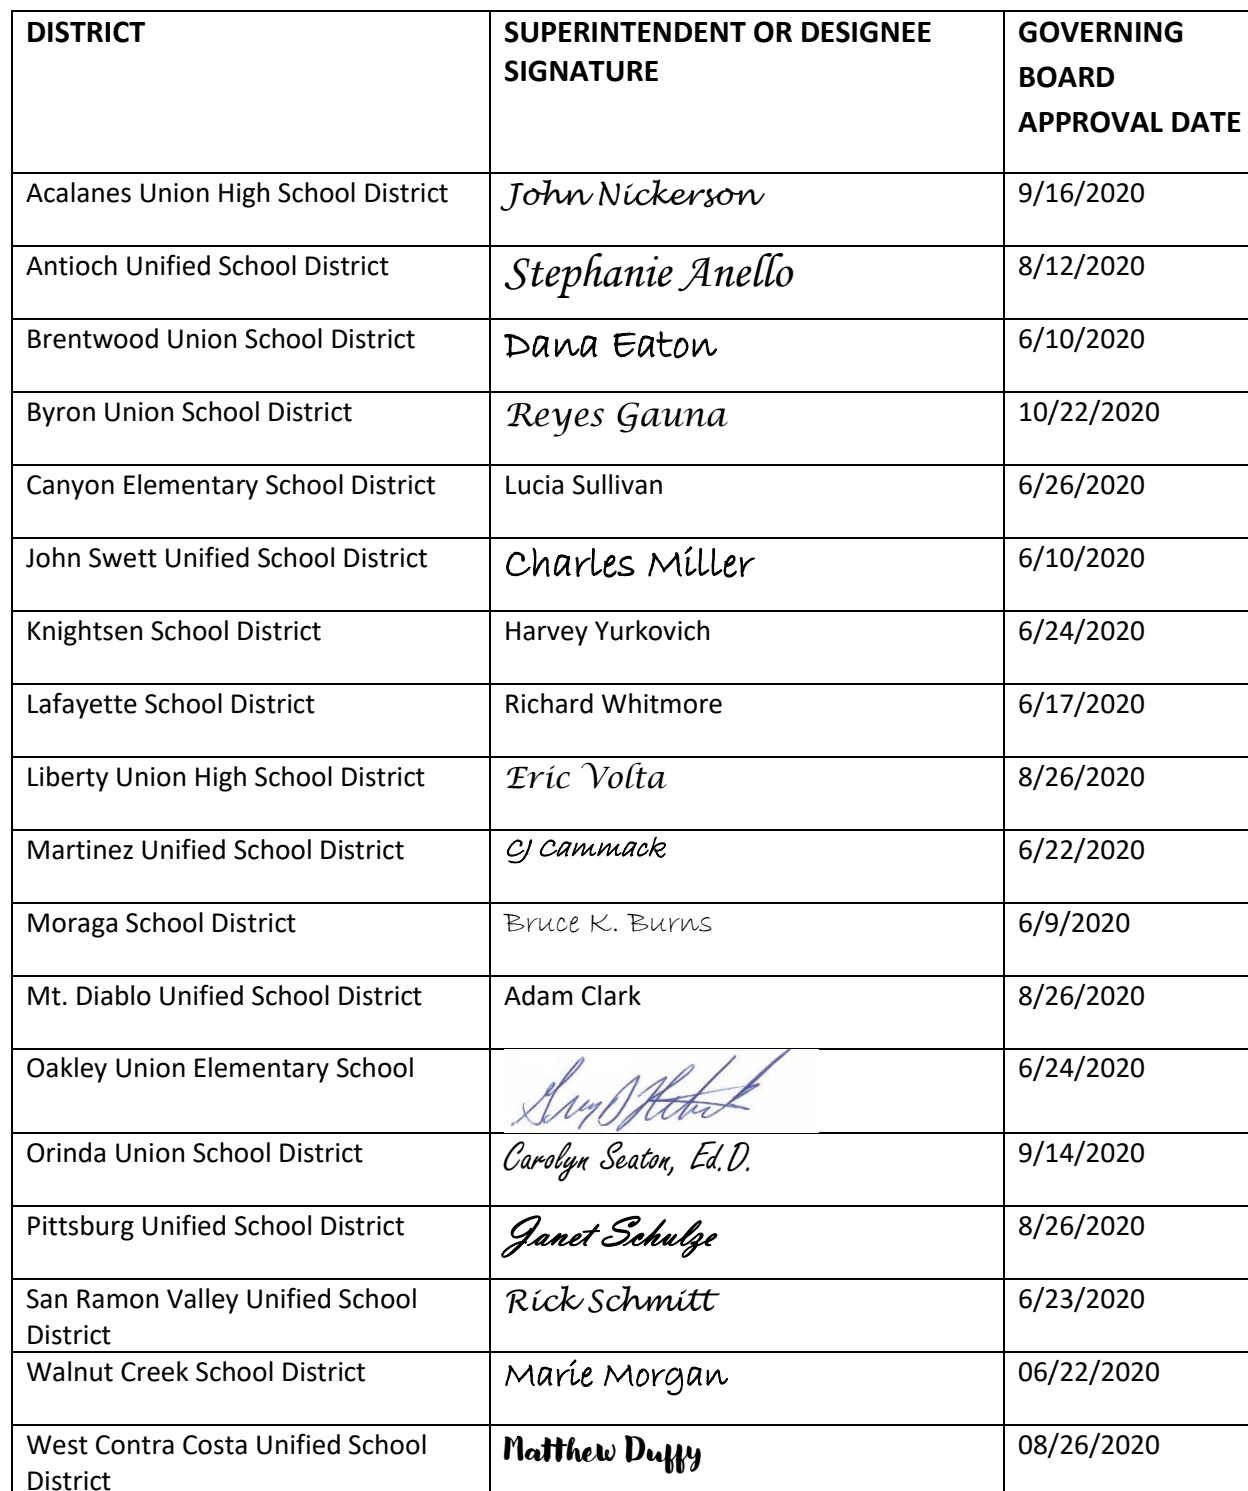 DISTRICT
SUPERINTENDENT OR DESIGNEE
SIGNATURE
GOVERNING
BOARD
APPROVAL DATE
Acalanes Union High School District
John Nickerson
9/16/2020
Antioch Unified School District
Stephanie Anello
8/12/2020
Brentwood Union School District
Dana Eaton
6/10/2020
Byron Union School District
Reyes Gauna
10/22/2020
Canyon Elementary School District
Lucia Sullivan
6/26/2020
John Swett Unified School District
Charles Miller
6/10/2020
Knightsen School District
Harvey Yurkovich
6/24/2020
Lafayette School District
Richard Whitmore
6/17/2020
Liberty Union High School District
Eric Volta
8/26/2020
Martinez Unified School District
CJ Cammack
6/22/2020
Moraga School District
Bruce K. Burns
6/9/2020
Mt. Diablo Unified School District
Adam Clark
8/26/2020
Oakley Union Elementary School
6/24/2020
Orinda Union School District
Carolyn Seaton, Ed.D.
9/14/2020
Pittsburg Unified School District
Janet Schulze
8/26/2020
San Ramon Valley Unified School
District
Rick Schmitt
6/23/2020
Walnut Creek School District
Marie Morgan
06/22/2020
West Contra Costa Unified School
District
Matthew Duffy
08/26/2020